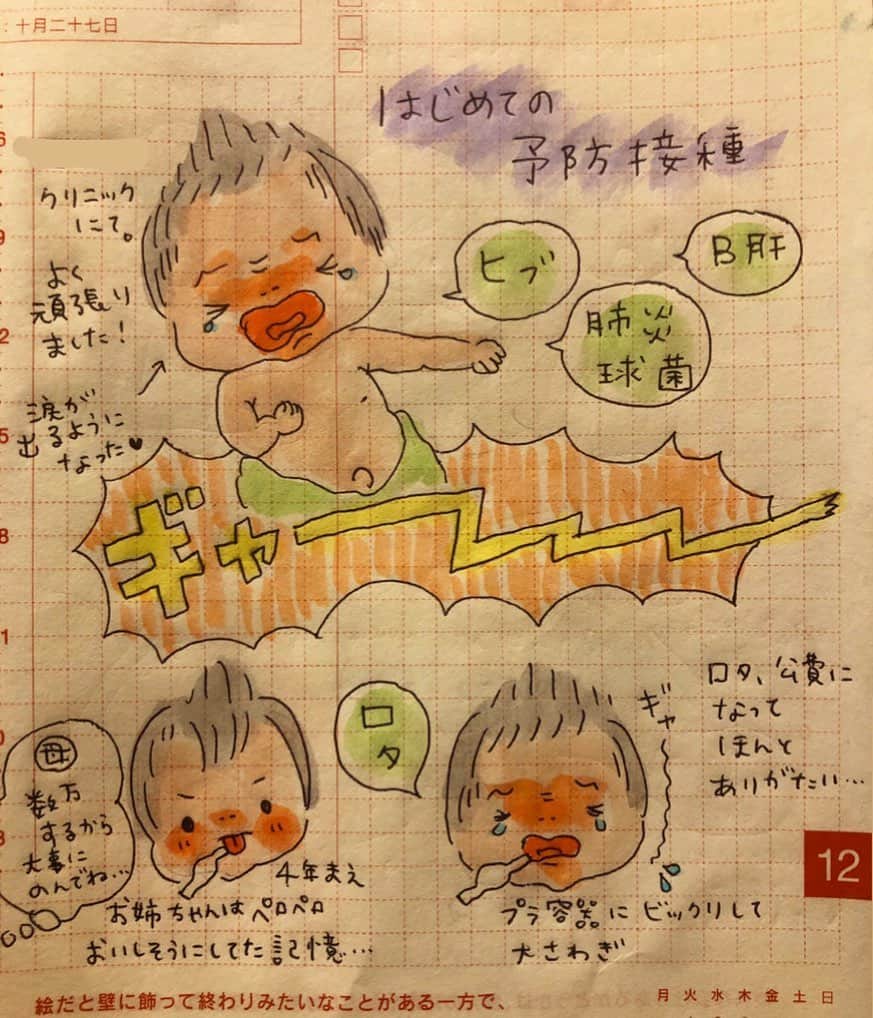 ：十月二十七日
はじめての
予防接種
クリニック
にて。
よく
頑張り
ました！
涙が
出るように
なった♥
ヒブ
肺炎
球菌
B肝
ギャー
ロタ
ギャ〜
ロタ、公費に
なって
ほんと
ありがたい…
母
数万
するから
大事に
のんでね…
4年まえ
お姉ちゃんはペロペロ
おいしそうにしてた記憶…
プラ容器にビックリして
大さわぎ
12
絵だと壁に飾って終わりみたいなことがある一方で、
月 火 水 木 金 土 日